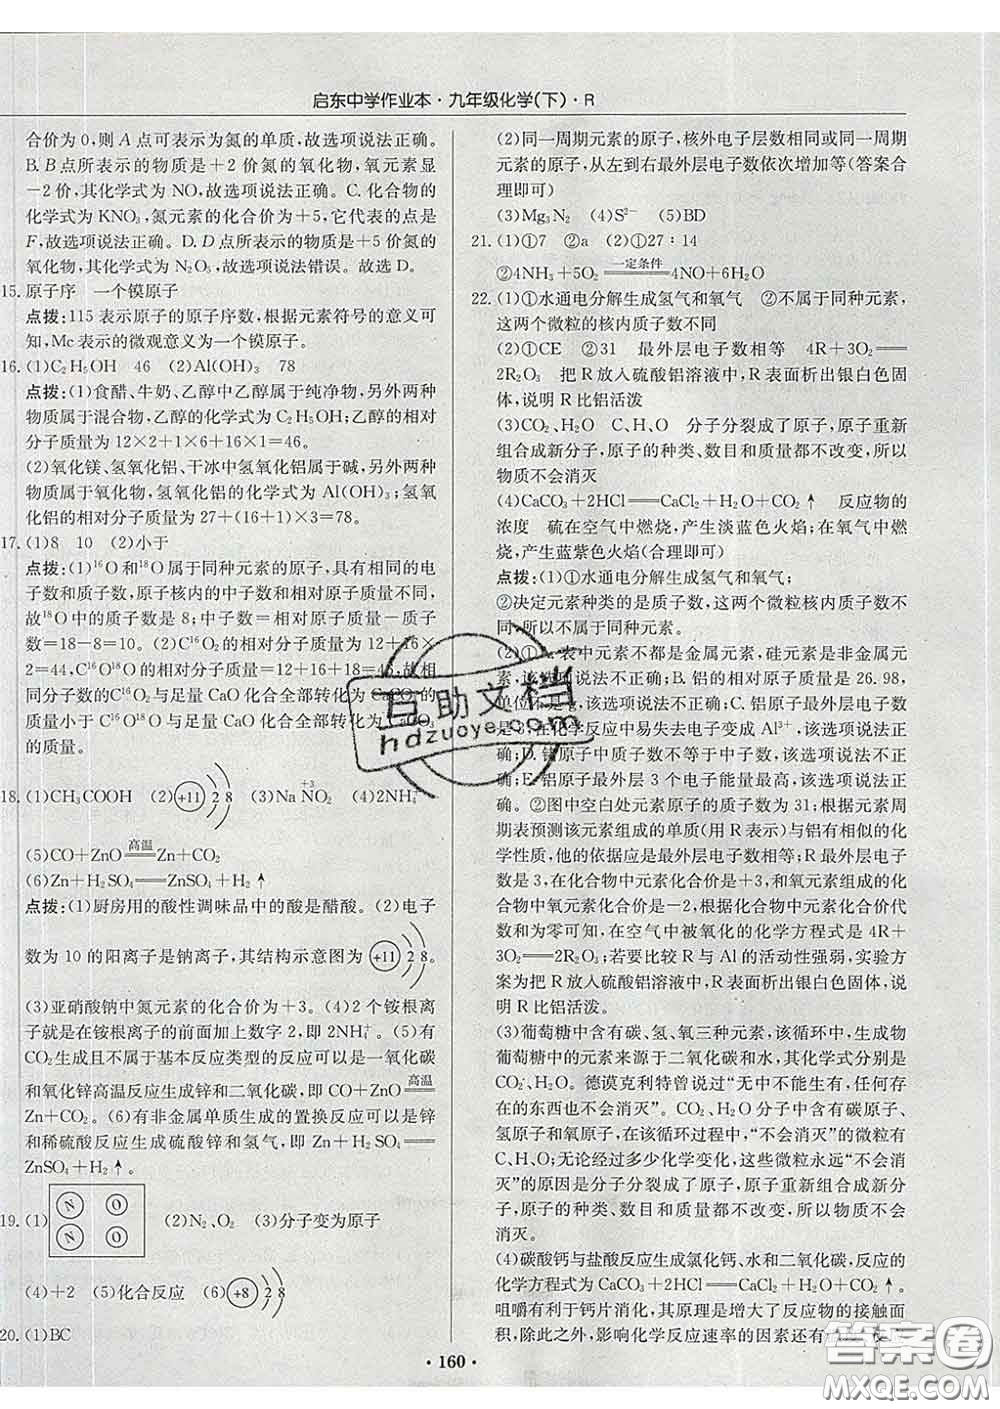 启东中学作业本·九年级化学(下)·R
合价为0,则A点可表示为氮的单质,故选项说法正确。
B.B点所表示的物质是+2价氮的氧化物,氧元素显
-2价,其化学式为NO,故选项说法正确。C.化合物的
化学式为KNO₃,氮元素的化合价为+5,它代表的点是
F,故选项说法正确。D.D点所表示的物质是+5价氮的
氧化物,其化学式为N₂O₅,故选项说法错误。故选D。
15.原子序 一个镆原子
点拨:115表示原子的原子序数,根据元素符号的意义可
知,Mc表示的微观意义为一个镆原子。
16.(1)C₂H₅OH 46 (2)Al(OH)₃ 78
点拨:(1)食醋、牛奶、乙醇中乙醇属于纯净物,另外两种
物质属于混合物,乙醇的化学式为C₂H₅OH;乙醇的相对
分子质量为12×2+1×6+16×1=46。
(2)氧化镁、氢氧化铝、干冰中氢氧化铝属于碱,另外两种
物质属于氧化物,氢氧化铝的化学式为Al(OH)₃;氢氧
化铝的相对分子质量为27+(16+1)×3=78。
17.(1)8 10 (2)小于
点拨:(1)¹⁶O和¹⁸O属于同种元素的原子,具有相同的电
子数和质子数,原子核内的中子数和相对原子质量不同,
故¹⁸O中的质子数是8;中子数=相对原子质量-质子
数=18-8=10。(2)C¹⁶O₂的相对分子质量=12+16
×2=44,C¹⁶O¹⁸O的相对分子质量=12+16+18=46,故相
同分子数的C¹⁶O₂与足量CaO化合全部转化为CaCO₃的
质量小于C¹⁶O¹⁸O与足量CaO化合全部转化为CaCO₃
的质量。
18.(1)CH₃COOH (2)+11 2 8 (3)Na N⁺³O₂ (4)2NH₄⁺
(5)CO+ZnO=高温=Zn+CO₂
(6)Zn+H₂SO₄=ZnSO₄+H₂↑
点拨:(1)厨房用的酸性调味品中的酸是醋酸。(2)电子
数为10的阳离子是钠离子,其结构示意图为+11 2 8。
(3)亚硝酸钠中氮元素的化合价为+3。(4)2个铵根离
子就是在铵根离子的前面加上数字2,即2NH₄⁺。(5)有
CO₂生成且不属于基本反应类型的反应可以是一氧化碳
和氧化锌高温反应生成锌和二氧化碳,即CO+ZnO=高温=
Zn+CO₂。(6)有非金属单质生成的置换反应可以是锌
和稀硫酸反应生成硫酸锌和氢气,即Zn+H₂SO₄=
ZnSO₄+H₂↑。
19.(1) N O N O (2)N₂、O₂ (3)分子变为原子
(4)+2 (5)化合反应 (6)+8 2 8
20.(1)BC
(2)同一周期元素的原子,核外电子层数相同或同一周期
元素的原子,从左到右最外层电子数依次增加等(答案合
理即可)
(3)Mg₃N₂ (4)S²⁻ (5)BD
21.(1)①7 ②a (2)①27:14
②4NH₃+5O₂=一定条件=4NO+6H₂O
22.(1)①水通电分解生成氢气和氧气 ②不属于同种元素,
这两个微粒的核内质子数不同
(2)①CE ②31 最外层电子数相等 4R+3O₂=
2R₂O₃ 把R放入硫酸铝溶液中,R表面析出银白色固
体,说明R比铝活泼
(3)CO₂、H₂O C、H、O 分子分裂成了原子,原子重新
组合成新分子,原子的种类、数目和质量都不改变,所以
物质不会消灭
(4)CaCO₃+2HCl=CaCl₂+H₂O+CO₂↑ 反应物的
浓度 硫在空气中燃烧,产生淡蓝色火焰;在氧气中燃
烧,产生蓝紫色火焰(合理即可)
点拨:(1)①水通电分解生成氢气和氧气;
②决定元素种类的是质子数,这两个微粒核内质子数不
同,所以不属于同种元素。
(2)①A.表中元素不都是金属元素,硅元素是非金属元
素,该选项说法不正确;B.铝的相对原子质量是26.98,
单位不是g,该选项说法不正确;C.铝原子的最外层电子数
是3,在化学反应中易失去电子变成Al³⁺,该选项说法正
确;D.镁原子中质子数不等于中子数,该选项说法不正
确;E.铝原子最外层3个电子能量最高,该选项说法正确。
②图中空白处元素原子的质子数为31;根据元素周
期表预测该元素组成的单质(用R表示)与铝有相似的化
学性质,他的依据应是最外层电子数相等;R最外层电子
数是3,在化合物中元素化合价是+3,和氧元素组成的化
合物中氧元素化合价是-2,根据化合物中元素化合价代
数和为零可知,在空气中被氧化的化学方程式是4R+
3O₂=2R₂O₃;若要比较R与Al的活动性强弱,实验方
案为把R放入硫酸铝溶液中,R表面析出银白色固体,说
明R比铝活泼。
(3)葡萄糖中含有碳、氢、氧三种元素,该循环中,生成物
葡萄糖中的元素来源于二氧化碳和水,其化学式分别是
CO₂、H₂O。德谟克利特曾说过“无中不能生有,任何存
在的东西也不会消灭”。CO₂、H₂O分子中含有碳原子、
氢原子和氧原子,在该循环过程中,“不会消灭”的微粒有
C、H、O;无论经过多少化学变化,这些微粒永远“不会消
灭”的原因是分子分裂成了原子,原子重新组合成新分
子,原子的种类、数目和质量都不改变,所以物质不会
消灭。
(4)碳酸钙与盐酸反应生成氯化钙、水和二氧化碳,反应的
化学方程式为CaCO₃+2HCl=CaCl₂+H₂O+CO₂↑。
咀嚼有利于钙片消化,其原理是增大了反应物的接触面
积,除此之外,影响化学反应速率的因素还有反应物的
·160·
互助文档
hdzuoye.com
答案圈
MXQE.COM